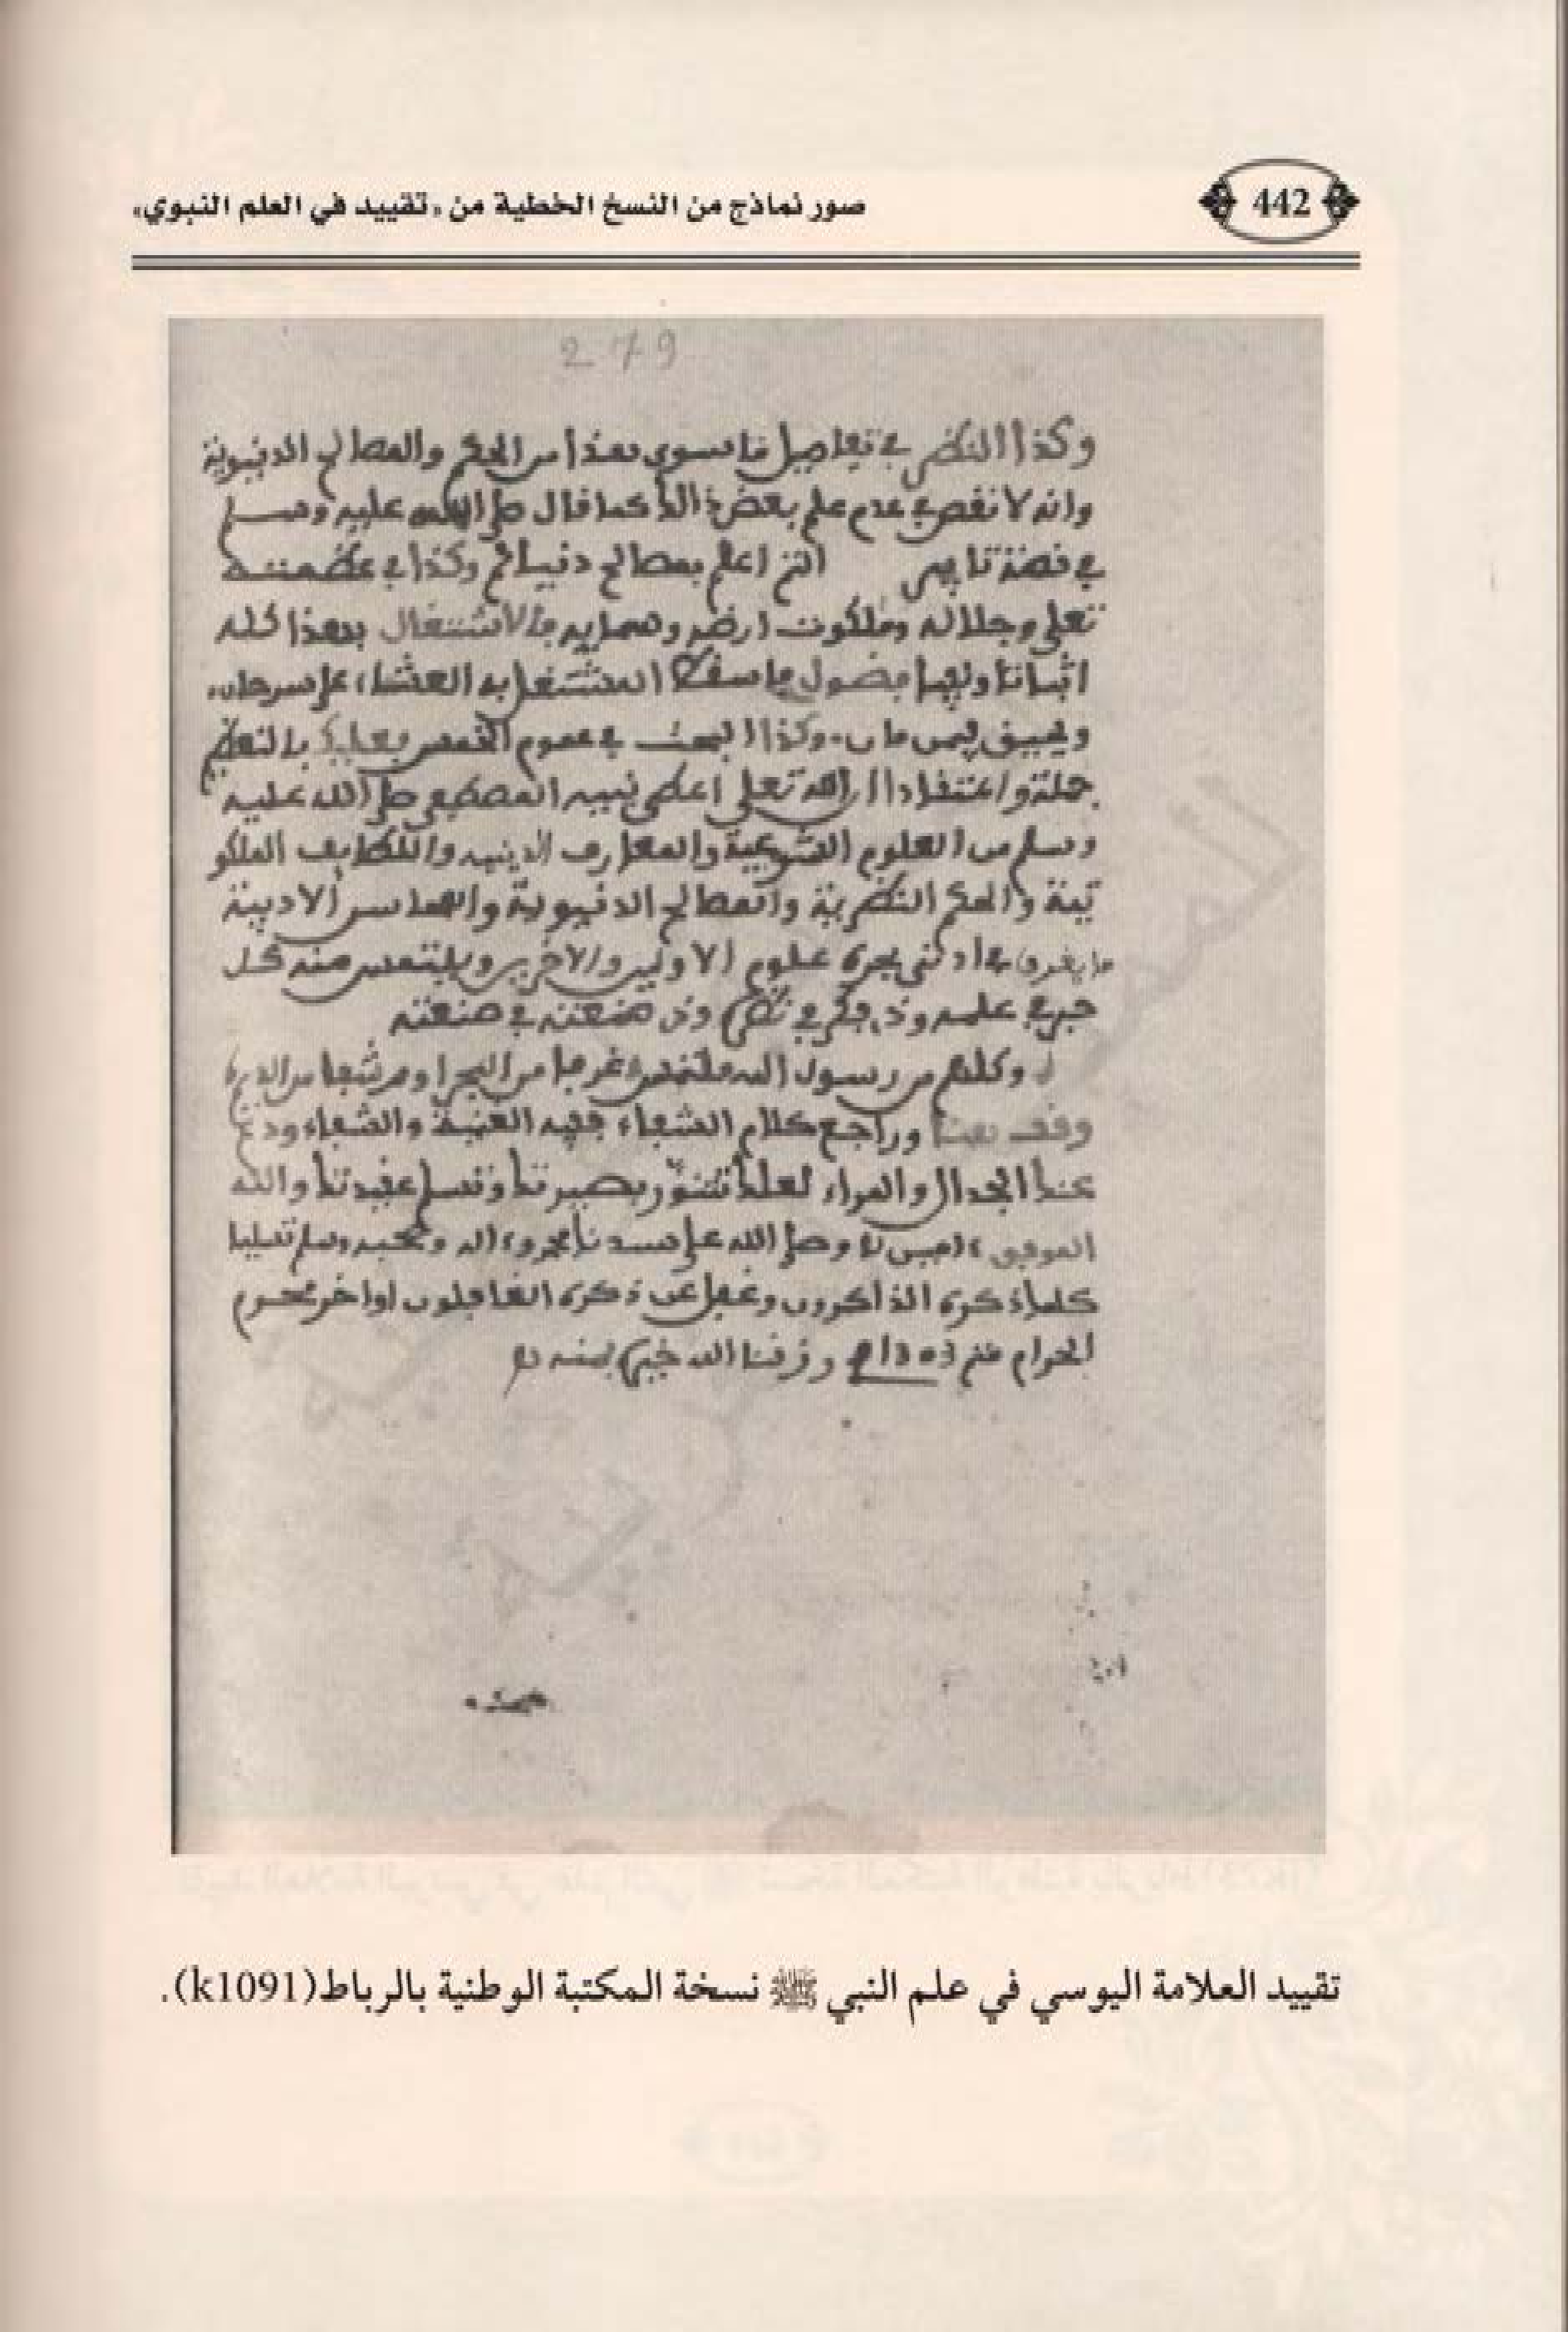 442
صور نماذج من النسخ الخطية من «تقييد في العلم النبوي»
279
وكذا النظر في تفاصيل ما سوى هذا من الحكم والمصالح الدنيوية
وانه لا نقص في عدم علم بعض ذالك كما قال صلى الله عليه وسلم
في قصة تابير انتم اعلم بمصالح دنياكم وكذا في عظمته
تعلى وجلاله وملكوت ارضه وسمايه فالاشتغال بهذا كله
اثباتا ونفيا فضول المشتغل به العشاء على سرحان
وكذا البحث في عموم الخمس فعليك بالتعظيم
جملة واعتقاد ان الله تعلى اعطى نبيه المصطفى صلى الله عليه
وسلم من العلوم الشرعية والمعارف الدينية واللطايف الملكو
تية والحكم النظرية والمصالح الدنيوية والمحاسن الادبية
ما يغرق في ادنى بحره علوم الاولين والاخرين ويلتمس منه كل
حبر في علمه وذي فكر في نظره وذي صنعة في صنعته
وكلهم من رسول الله ملتمس غرفا من البحر او رشفا من الديم
وقف هنا وراجع كلام الشفاء ففيه الغنية والشفاء ودع
عنك الجدال والمراء لعلك تتنور بصيرتك وتسلم عقيدتك والله
الموفق وصلى الله على سيدنا محمد وءاله وصحبه وسلم تسليما
كلما ذكره الذاكرون وغفل عن ذكره الغافلون اواخر محرم
الحرام رزقنا الله خيره بمنه
تقييد العلامة اليوسي في علم النبي ﷺ نسخة المكتبة الوطنية بالرباط(k1091).